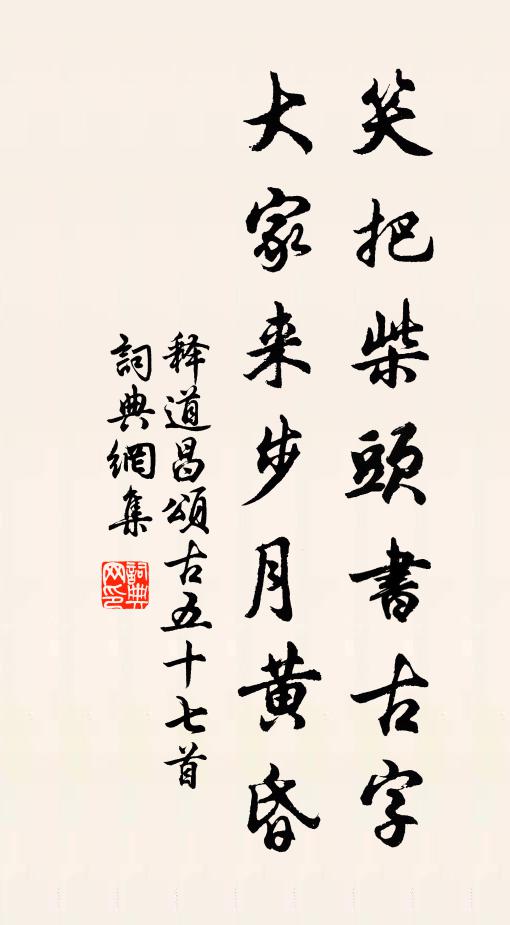 笑把柴頭書古字
大家来步月黄昏
释道昌頌古五十七首
詞典網集
詞典网印